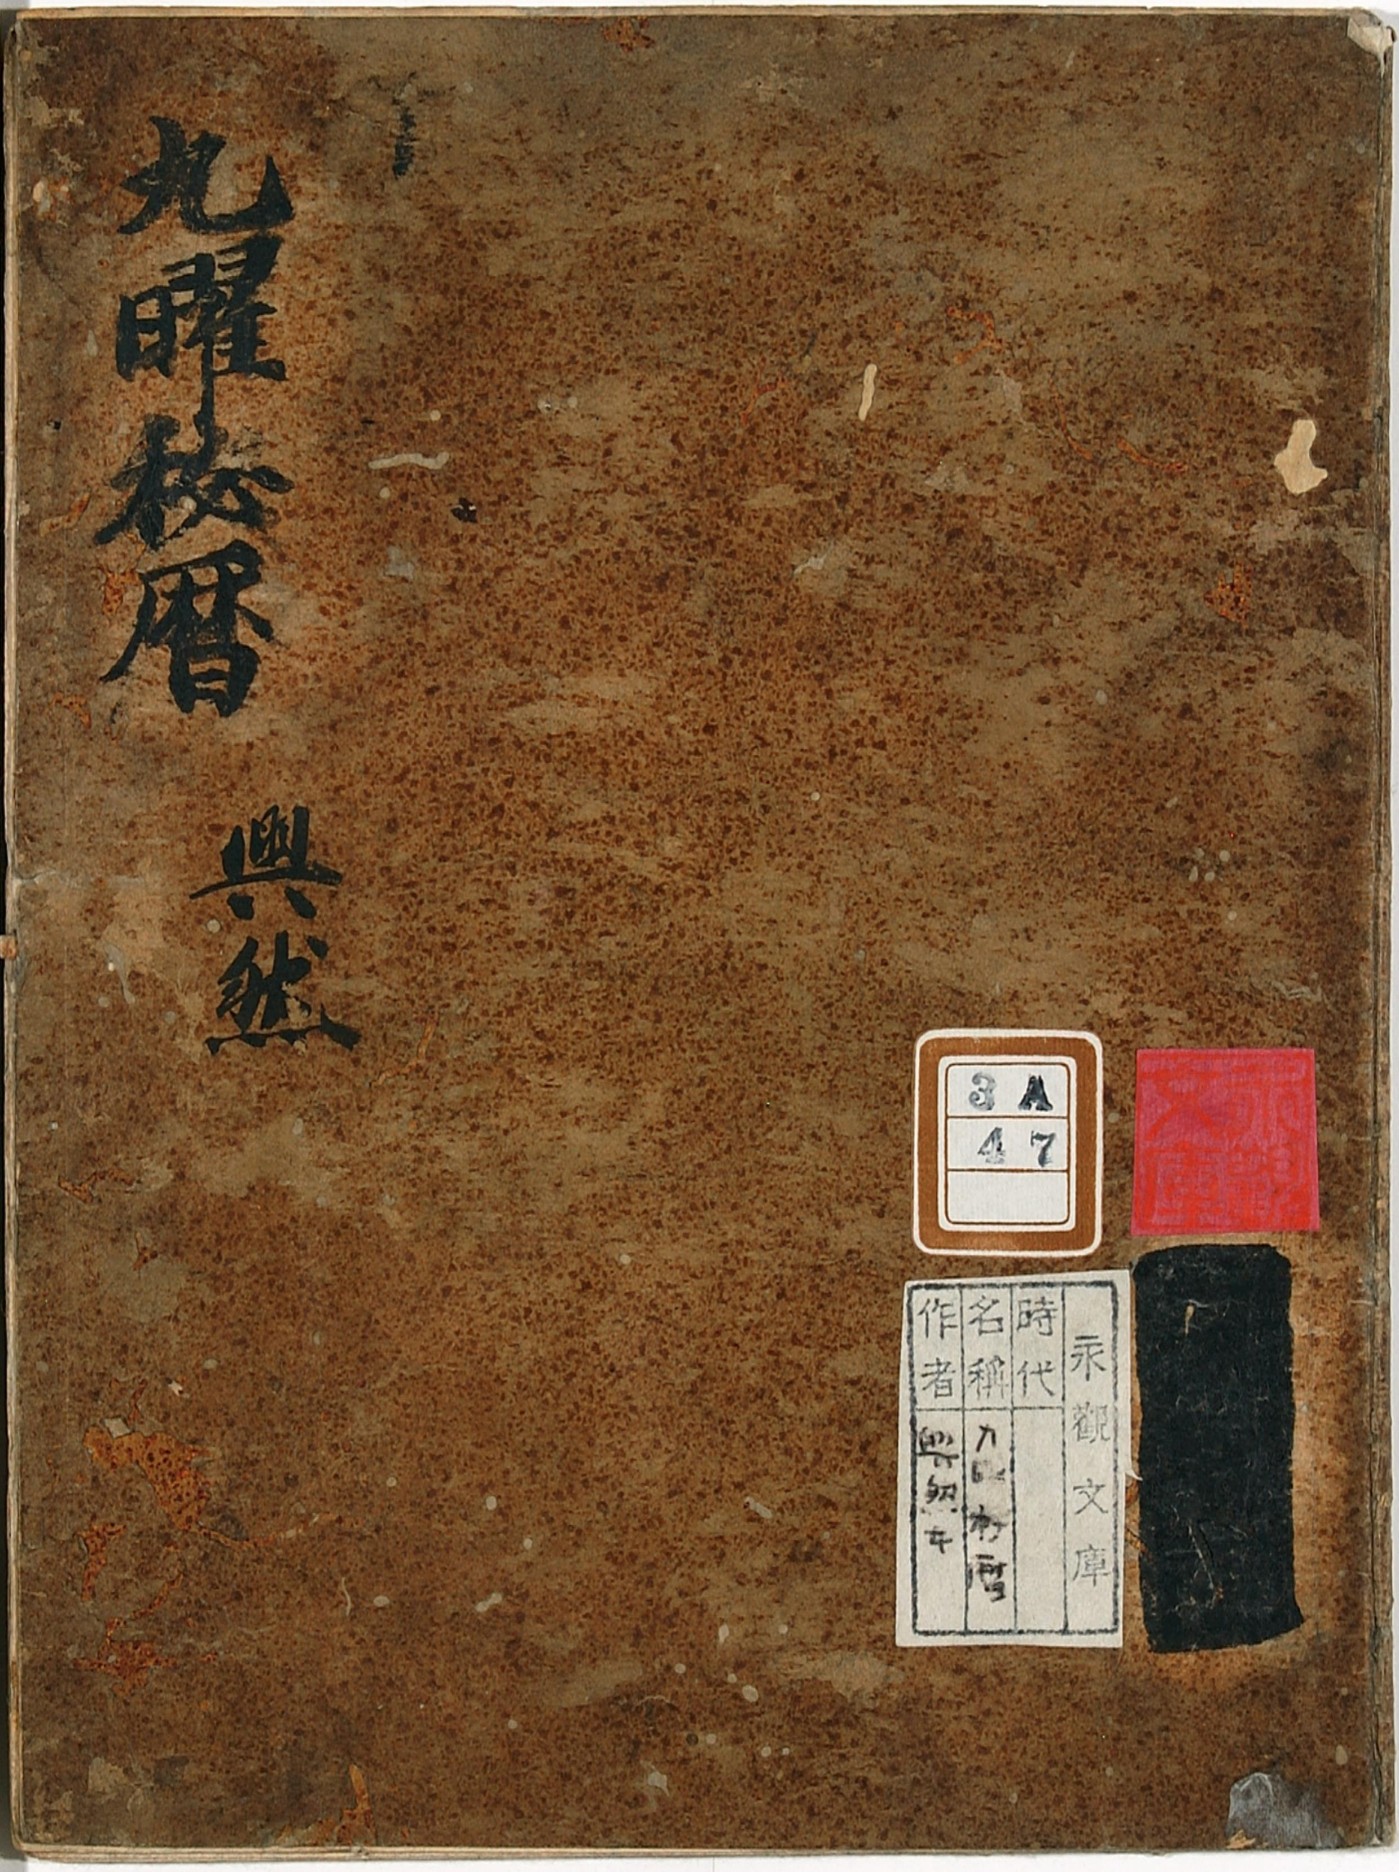 九曜秘暦
興然
3 A
4 7
永観文庫
時代
名稱 九曜秘暦
作者 興然